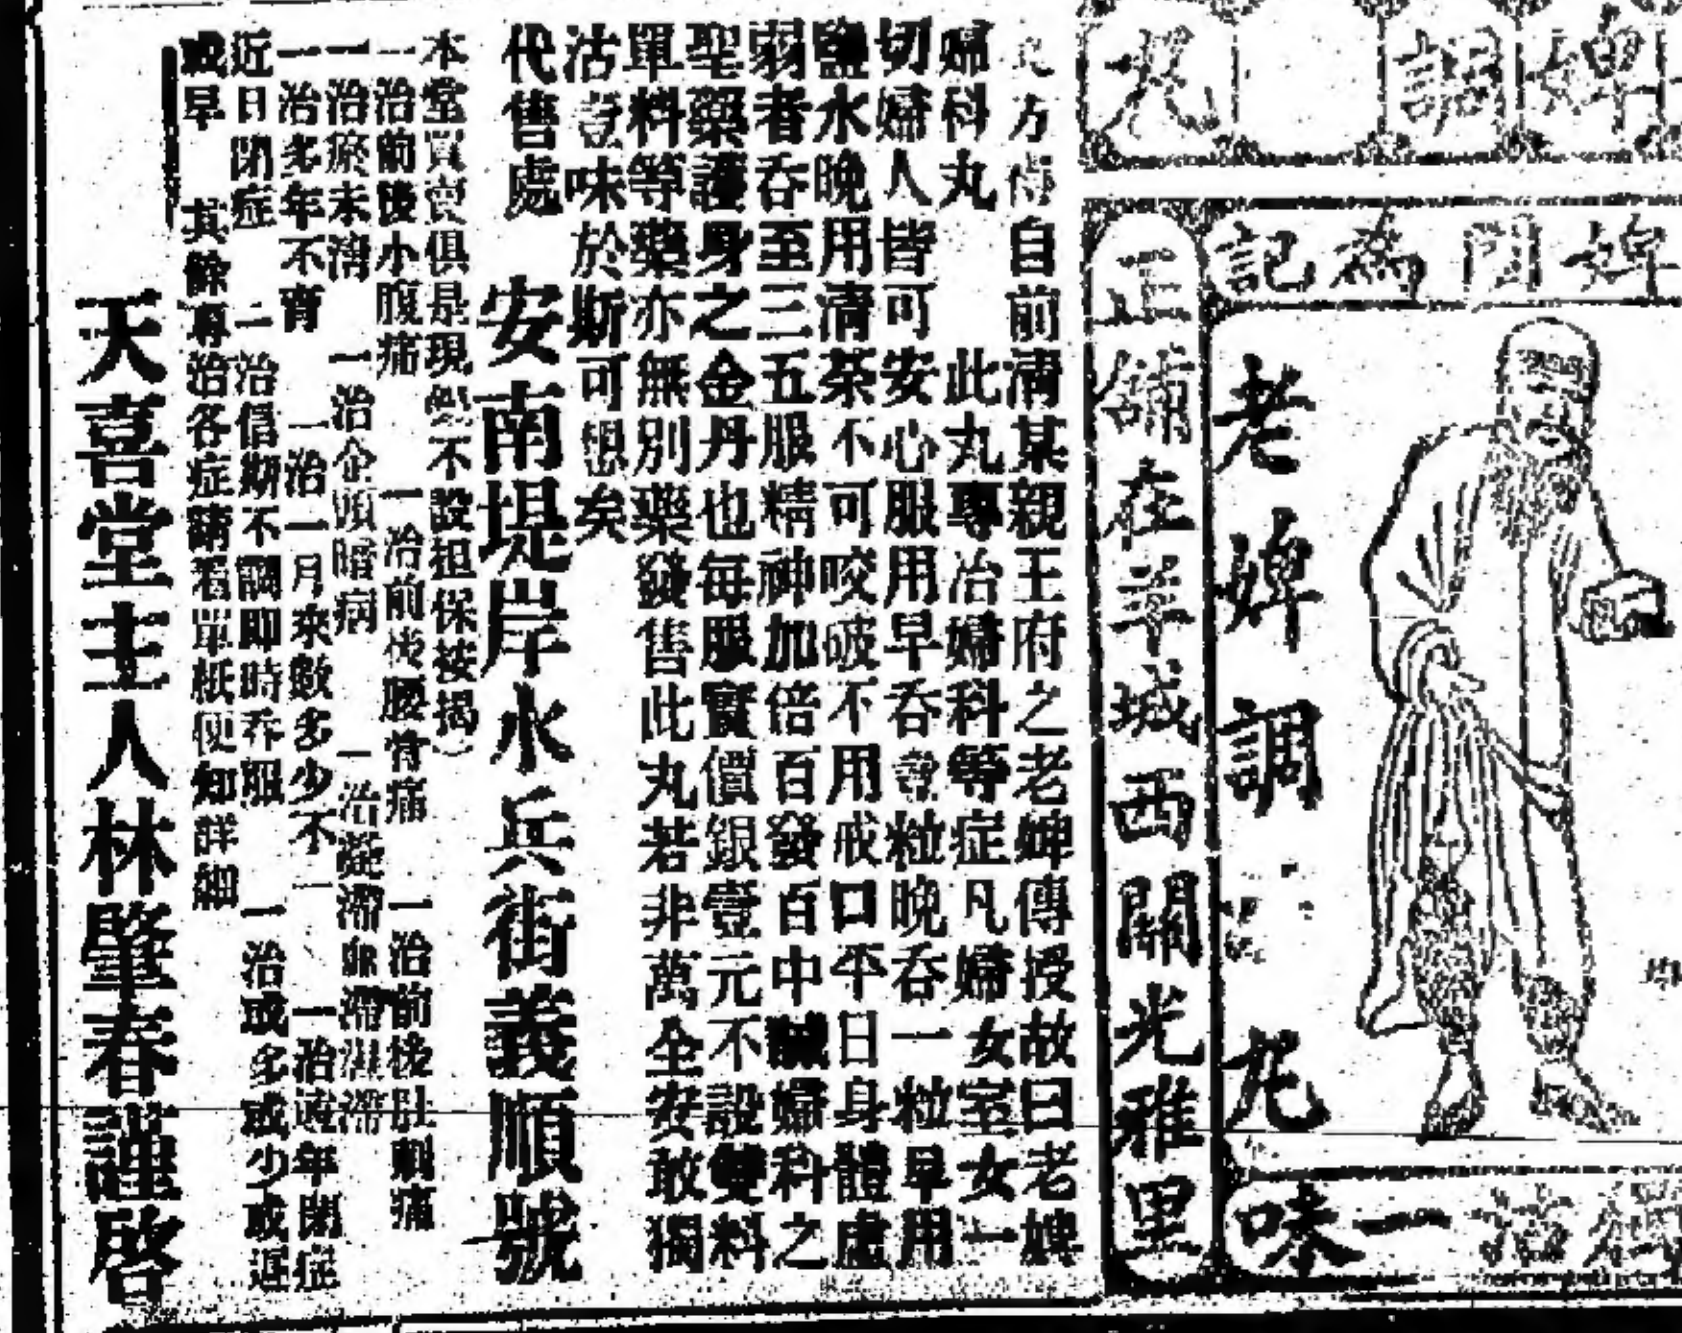 婢調丸
婢為記
老婢調丸
沽一味
正舖在羊城西關光雅里
方傳自前清某親王府之老婢傳授故曰老婢
婦科丸 此丸專治婦科等症凡婦女室女一
切婦人皆可安心服用早吞壹粒晚吞一粒早用
鹽水晚用清茶不可咬破不用戒口平日身體虛
弱者吞至三五服精神加倍百發百中誠婦科之
聖藥護身之金丹也每服實價銀壹元不設雙料
單料等藥亦無別藥發售此丸若非萬全安敢獨
沽壹味於斯可想矣
代售處 安南堤岸水兵街義順號
本堂買賣俱是現銀不設担保接揭）
一治前後小腹痛 一治前後腰骨痛 一治前後肚刺痛
一治瘀未清 一治企頭暗病 一治凝滯血滯濕滯
一治多年不育 一治一月來數多少不一 一治遠年閉症
近日閉症 一治信期不調即時吞服 一治或多或少或遲
或早 其餘專治各症請看單紙便知詳細
天喜堂主人林肇春謹啓